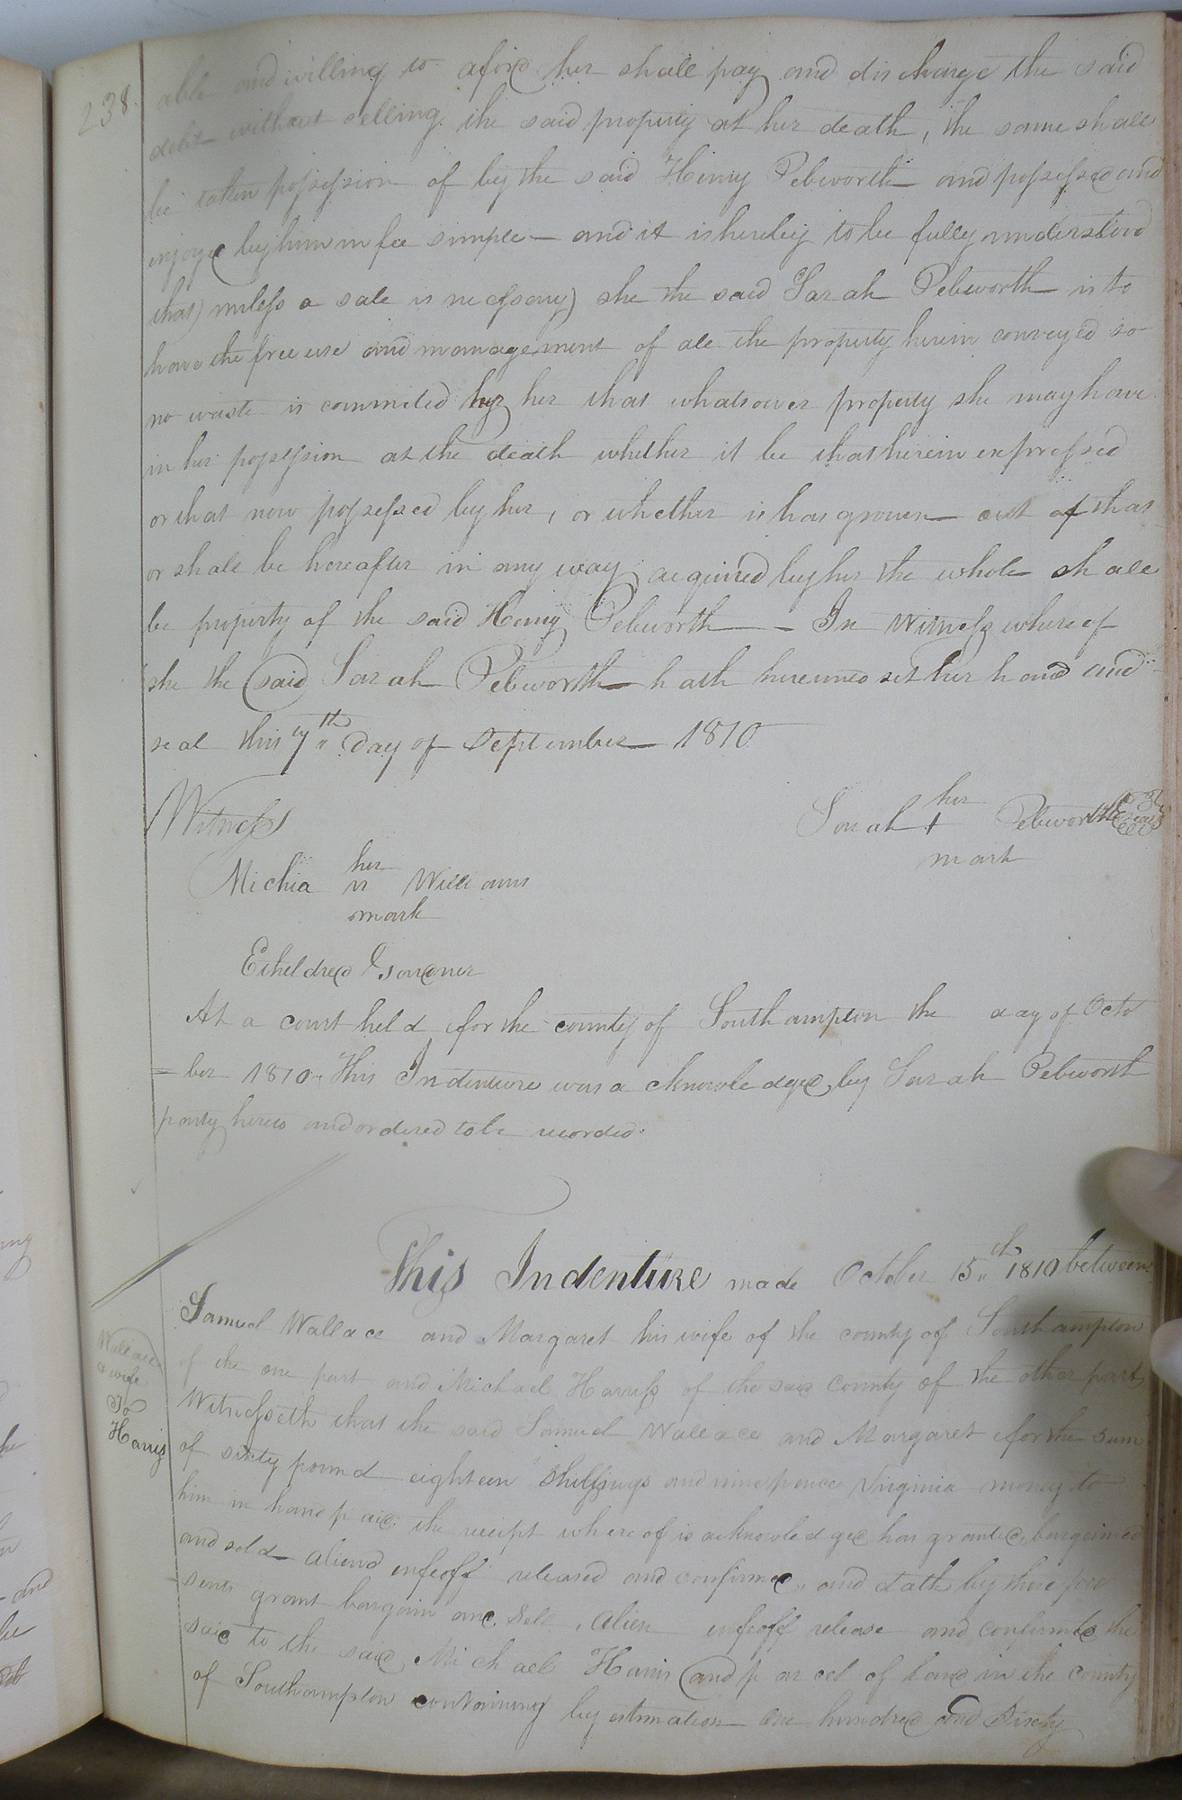 238.
able and willing to aford her shall pay and discharge the said
debt without selling the said property at her death, the same shall
be taken possession of by the said Henry Pebworth and possessed and
enjoyed by him in fee simple — and it is hereby to be fully understood
that) unless a sale is necessary) she the said Sarah Pebworth is to
have the free use and management of all the property herein conveyed so
no waste is commited by her that whatsoever property she may have
in her possession at the death whether it be that herein expressed
or that now possessed by her, or whether is has grown out of that
or shall be hereafter in any way acquired by her the whole shall
be property of the said Henry Pebworth — In Witness whereof
she the said Sarah Pebworth hath hereunto set her hand and
seal this 7th Day of September 1810
Witness
Sarah her + mark Pebworth
Michia her mark Williams
Etheldred Gardner
At a court held for the county of Southampton the day of Octo
= ber 1810 This Indenture was acknowledged by Sarah Pebworth
party hereto and ordered to be recorded.
This Indenture made October 15th 1810 between
Wallace
& wife
To
Harris
Samuel Wallace and Margaret his wife of the county of Southampton
of the one part and Michael Harriss of the said County of the other part
Witnesseth that the said Samuel Wallace and Margaret for the sum
of sixty pound eighteen shillings and nine pence Virginia money to
him in hand paid the receipt whereof is acknowledged has granted, bargained
and sold aliend enfeoff released and confirmed, and doth by these pre
sents grant bargain and Sell, alien enfeoff release and confirm to the
said to the said Michael Harris and parcel of land in the county
of Southampton containing by estimation one hundred and Sixty